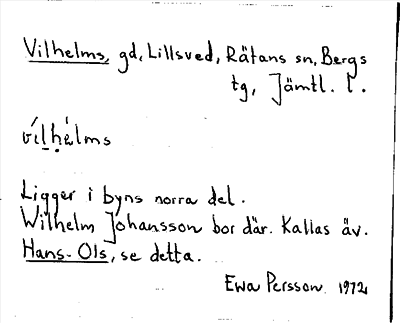 Vilhelms, gd, Lillsved, Rätans sn, Bergs
tg, Jämtl. l.
vílhélms
Ligger i byns norra del.
Wilhelm Johansson bor där. Kallas äv.
Hans-Ols, se detta.
Ewa Persson 1972